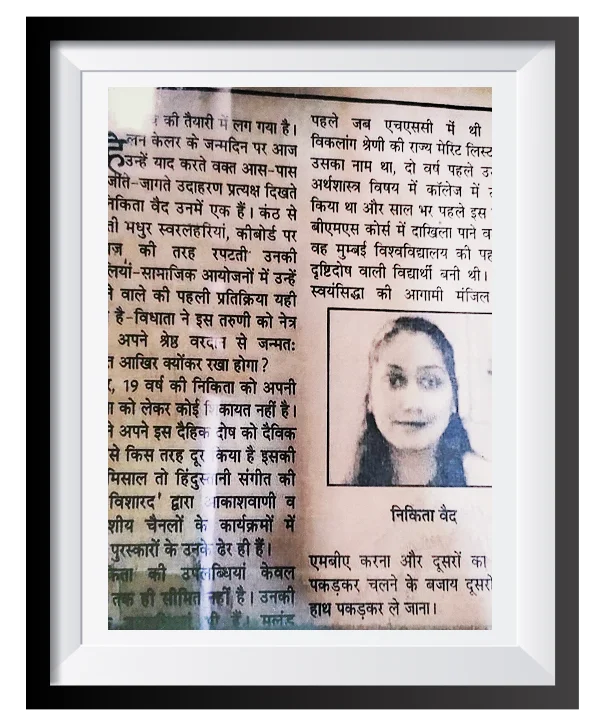 की तैयारी में लग गया है।
हेलन केलर के जन्मदिन पर आज
उन्हें याद करते वक्त आस-पास
जीते-जागते उदाहरण प्रत्यक्ष दिखते
निकिता वैद उनमें एक हैं। कंठ से
ती मधुर स्वरलहरियां, कीबोर्ड पर
की तरह रपटती उनकी
लियां-सामाजिक आयोजनों में उन्हें
वाले की पहली प्रतिक्रिया यही
है-विधाता ने इस तरुणी को नेत्र
अपने श्रेष्ठ वरदान से जन्मत:
आखिर क्योंकर रखा होगा?
19 वर्ष की निकिता को अपनी
को लेकर कोई शिकायत नहीं है।
अपने इस दैहिक दोष को दैविक
से किस तरह दूर किया है इसकी
मिसाल तो हिंदुस्तानी संगीत की
विशारद' द्वारा आकाशवाणी व
शीय चैनलों के कार्यक्रमों में
पुरस्कारों के उनके ढेर ही हैं।
की उपलब्धियां केवल
तक ही सीमित नहीं है। उनकी
पहले जब एचएससी में थी
विकलांग श्रेणी की राज्य मेरिट लिस्ट
उसका नाम था, दो वर्ष पहले
अर्थशास्त्र विषय में कॉलेज में
किया था और साल भर पहले इस
बीएमएस कोर्स में दाखिला पाने व
वह मुम्बई विश्वविद्यालय की पह
दृष्टिदोष वाली विद्यार्थी बनी थी।
स्वयंसिद्धा की आगामी मंजिल
निकिता वैद
एमबीए करना और दूसरों का
पकड़कर चलने के बजाय दूसरो
हाथ पकड़कर ले जाना।